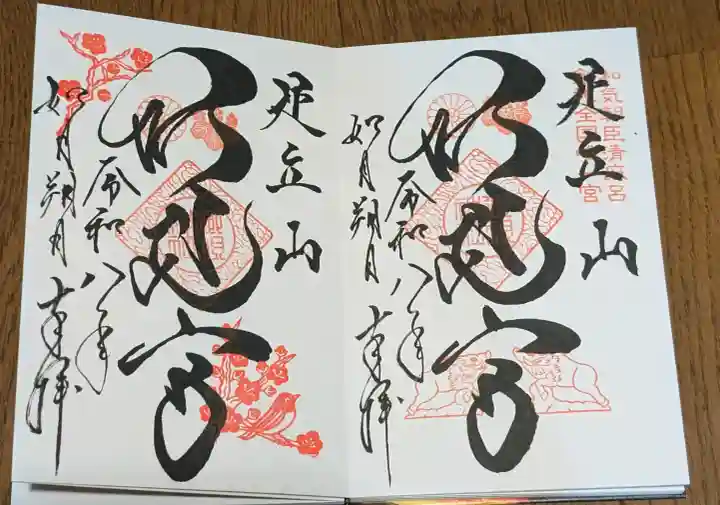 和気朝臣清麻呂
足立山
妙見宮
令和八年
如月朔月 奉拝
足立山
妙見宮
令和八年
如月朔月 奉拝